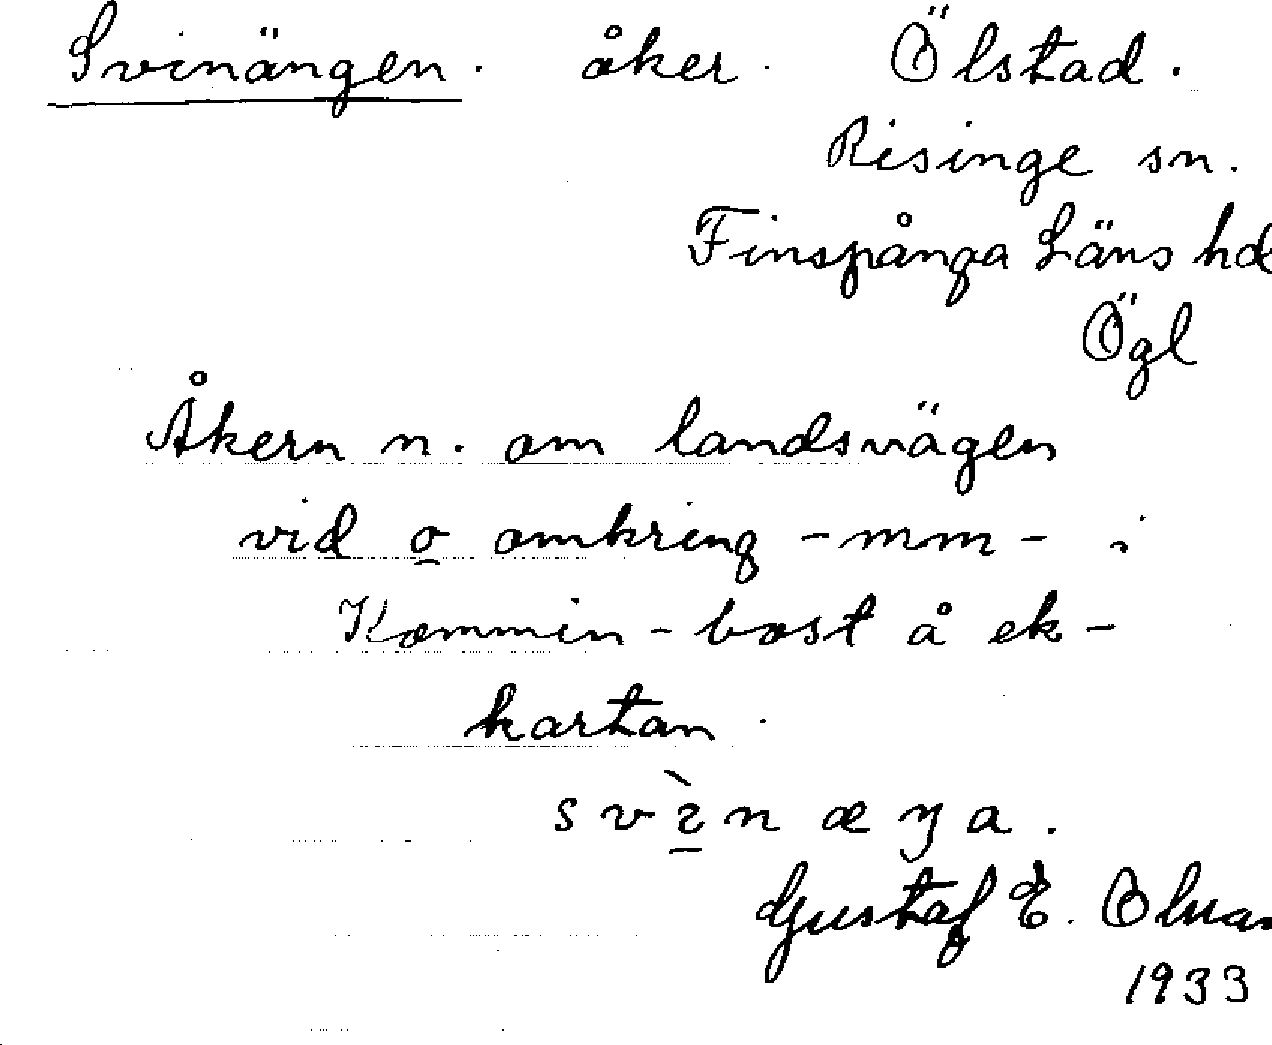 Svinängen. åker. Ölstad.
Risinge sn.
Finspånga Läns hd
Ögl
Åkern n. om landsvägen
vid o omkring - mm - i
Kommin-bost å ek-
kartan.
svὶnæŋa.
Gustaf E.
1933